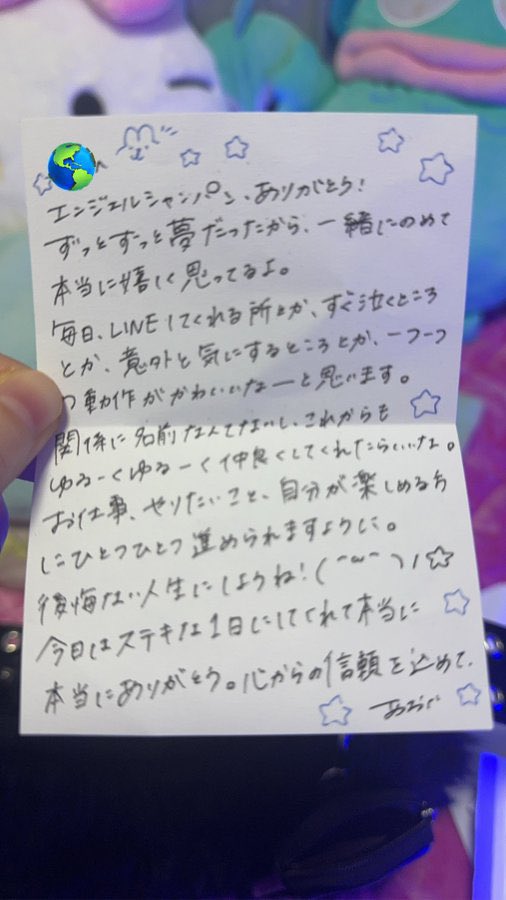 エンジェルシャンパン、ありがとう!
ずっとずっと夢だったから、一緒にのめて
本当に嬉しく思ってるよ。
毎日、LINEしてくれる所とか、すぐ泣くところ
とか、意外と気にするところとか、一つ一つ
の動作がかわいいなーと思います。
関係に名前なんてないし、これからも
ゆるーくゆるーく仲良くしてくれたらいいな。
お仕事、やりたいこと、自分が楽しめる方
にひとつひとつ進められますように。
後悔ない人生にしようね!(^ω^)ノ☆
今日はステキな1日にしてくれて本当に
本当にありがとう。心からの信頼を込めて、